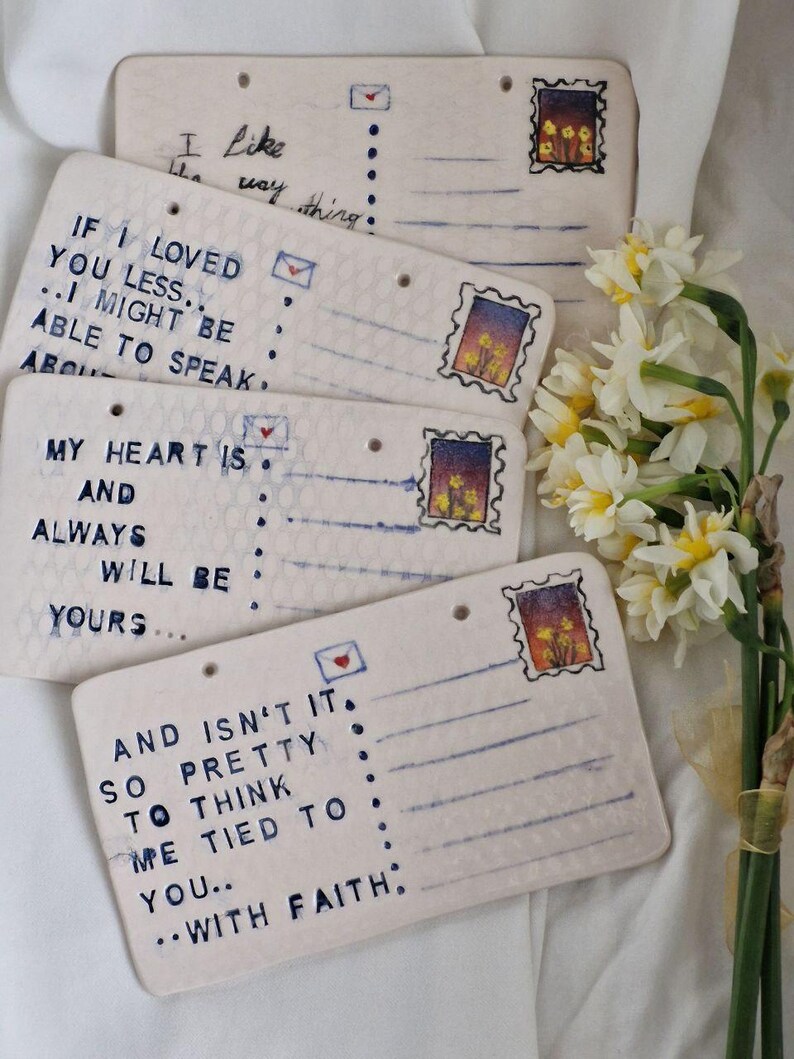 I like
the way
thing
IF I LOVED
YOU LESS..
..I MIGHT BE
ABLE TO SPEAK
ABOUT
MY HEART IS
AND
ALWAYS
WILL BE
YOURS...
AND ISN'T IT
SO PRETTY
TO THINK
ME TIED TO
YOU..
..WITH FAITH.